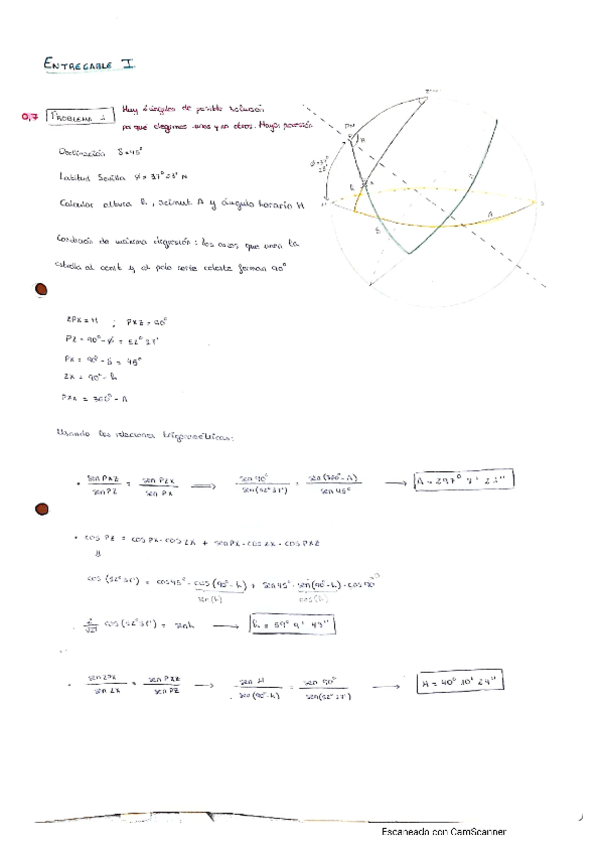 ENTREGABLE I
0,7 PROBLEMA 1 Hay ángulos de posible solución
ya que elegimos unos y no otros. Mayor precisión
Declinación δ = 45º
Latitud Sevilla φ = 37º 23' N
Calcular altura h, acimut A y ángulo horario H
Condición de máxima digresión: los arcos que unen la
estrella al cenit y al polo norte celeste forman 90º
ZPX = H ; PXZ = 90º
PZ = 90º - φ = 52º 37'
PX = 90º - δ = 45º
ZX = 90º - h
= 360º - A
Usando las relaciones trigonométricas:
• sen PXZ / sen PZ = sen PZX / sen PX → sen 90º / sen(52º 37') = sen(360º - A) / sen 45º → A = 297º 7' 23"
• cos PZ = cos PX · cos ZX + sen PX · cos ZX · cos PXZ
cos (52º 37') = cos 45º · cos (90º - h) + sen 45º · sen (90º - h) · cos 90º
sen(h) cos(h)
cos (52º 37') = sen h → h = 59º 9' 43"
• sen ZPX / sen ZX = sen PXZ / sen PZ → sen H / sen (90º - h) = sen 90º / sen(52º 37') → H = 40º 10' 24"
Escaneado con CamScanner